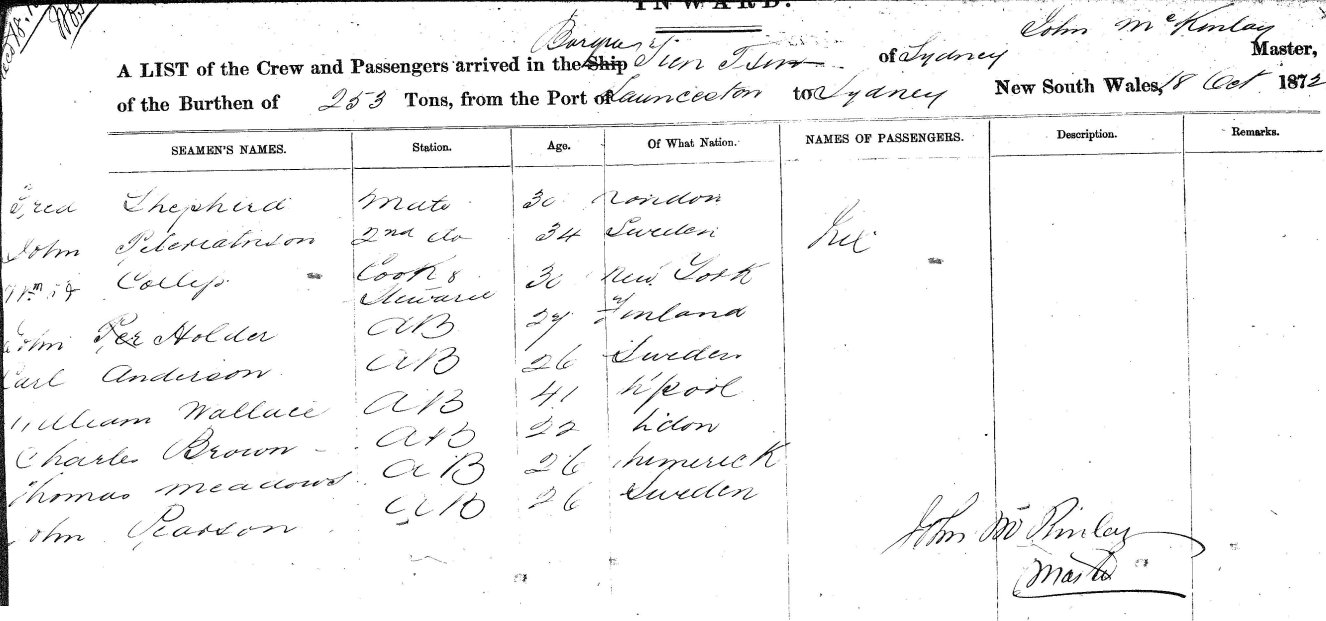 INWARD.
John McKinlay
A LIST of the Crew and Passengers arrived in the Ship Tien Tsin of Sydney Master,
of the Burthen of 253 Tons, from the Port of Launceston to Sydney New South Wales, 18 Oct 1872
SEAMEN'S NAMES. Station. Age. Of What Nation. NAMES OF PASSENGERS. Description. Remarks.
Fred Shepherd Mate 30 London
John 2nd do 34 Sweden
Wm Cook & Steward 30 New York
John Per Holder AB 27 Finland
Carl Anderson AB 26 Sweden
William Wallace AB 41 L'pool
Charles Brown AB 22 L'don
Thomas Meadows AB 26 Limerick
John Pearson AB 26 Sweden
John McKinlay
Master